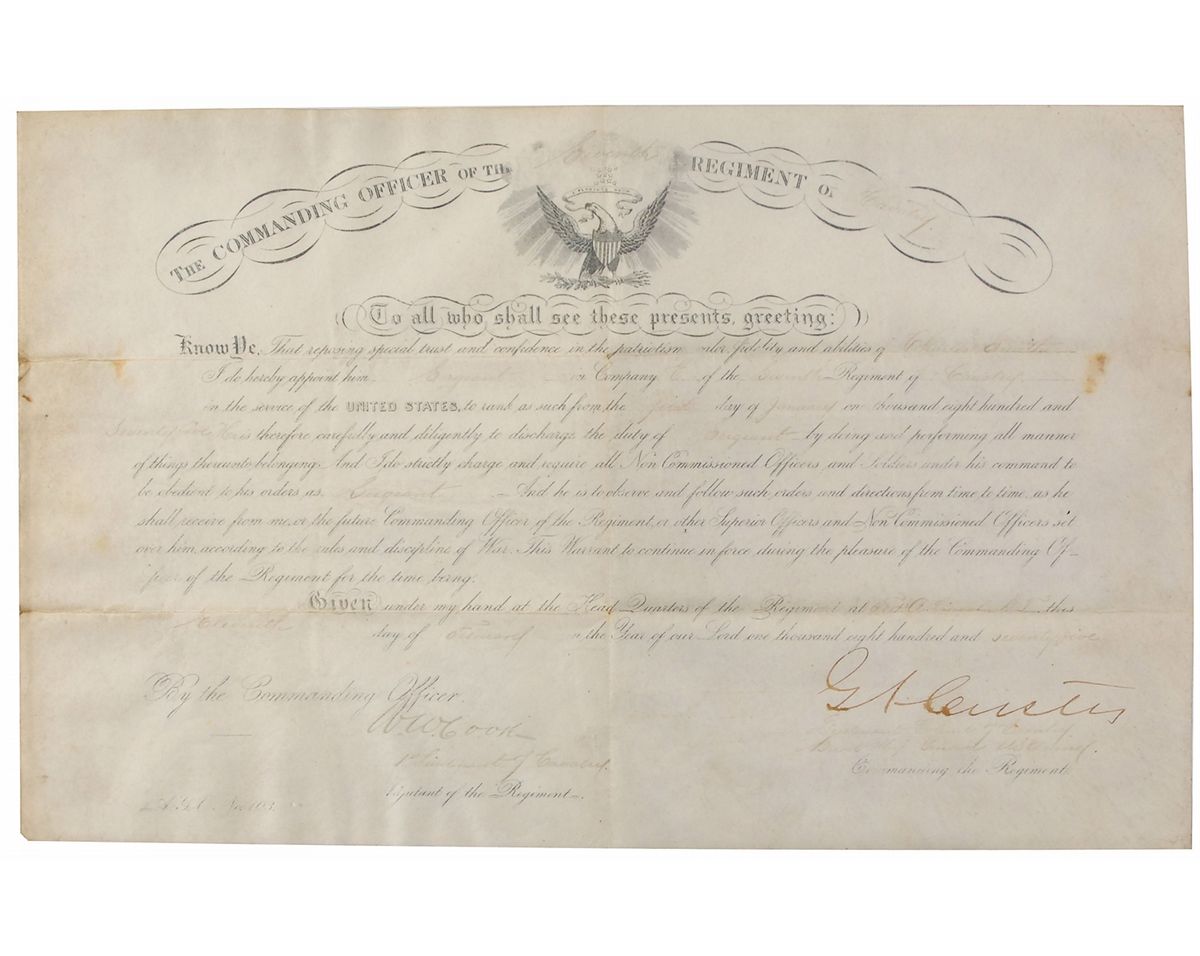 THE COMMANDING OFFICER OF THE Seventh REGIMENT OF Cavalry
To all who shall see these presents, greeting:
Know Ye, That reposing special trust and confidence in the patriotism valor, fidelity and abilities of
I do hereby appoint him Sergeant in Company of the Seventh Regiment of Cavalry
in the service of the UNITED STATES, to rank as such from the first day of January one thousand eight hundred and
Seventy five He is therefore carefully and diligently to discharge the duty of Sergeant by doing and performing all manner
of things thereunto belonging. And I do strictly charge and require all Non Commissioned Officers, and Soldiers under his command to
be obedient to his orders as Sergeant And he is to observe and follow such orders and directions from time to time, as he
shall receive from me, or the future Commanding Officer of the Regiment, or other Superior Officers and Non Commissioned Officers set
over him, according to the rules and discipline of War. This Warrant to continue in force during the pleasure of the Commanding Of-
ficer of the Regiment for the time being.
Given under my hand at the Head Quarters of the Regiment at this
Eleventh day of in the Year of our Lord one thousand eight hundred and seventy five
By the Commanding Officer.
W W Cook
1st Lieutenant 7 Cavalry.
Adjutant of the Regiment.
G A Custer
Lieutenant Colonel 7 Cavalry
Bvt Maj Genl U S Army.
Commanding the Regiment.
A.G.O. No. 103.